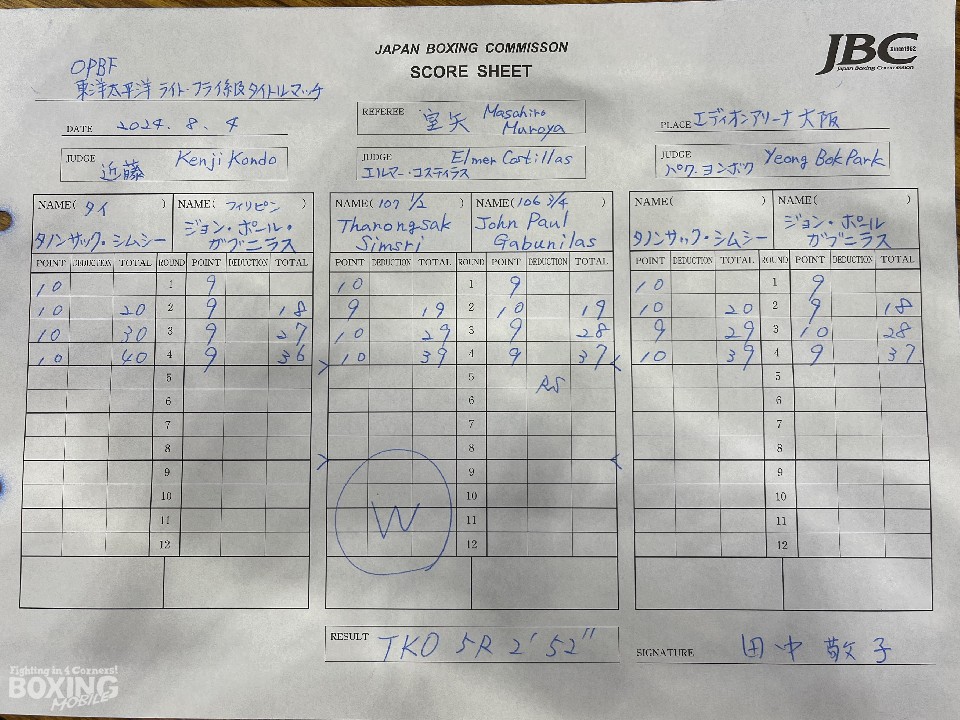 JAPAN BOXING COMMISSON
SCORE SHEET
JBC
Since1952
Japan Boxing Commission
OPBF
東洋太平洋 ライト・フライ級 タイトルマッチ
DATE 2024. 8. 4
REFEREE 室矢 Masahiro Muroya
PLACE エディオンアリーナ大阪
JUDGE 近藤 Kenji Kondo
JUDGE Elmer Costillas
エルマー・コスティラス
JUDGE パク・ヨンボク Yeong Bok Park
NAME( タイ ) NAME( フィリピン )
タノンサック・シムシー ジョン・ポール・ガブニラス
NAME(107 1/2 ) NAME(106 3/4 )
Thanongsak Simsri John Paul Gabunilas
NAME( ) NAME( )
タノンサック・シムシー ジョン・ポール ガブニラス
POINT DEDUCTION TOTAL ROUND POINT DEDUCTION TOTAL
10 1 9
10 20 2 9 18
10 30 3 9 27
10 40 4 9 36
5
6
7
8
9
10
11
12
POINT DEDUCTION TOTAL ROUND POINT DEDUCTION TOTAL
10 1 9
9 19 2 10 19
10 29 3 9 28
10 39 4 9 37
5
6
7
8
9
10
11
12
W
POINT DEDUCTION TOTAL ROUND POINT DEDUCTION TOTAL
10 1 9
10 20 2 9 18
9 29 3 10 28
10 39 4 9 37
5
6
7
8
9
10
11
12
RESULT TKO 5R 2'52"
SIGNATURE 田中敬子
Fighting in 4 Corners!
BOXING
MOBILE